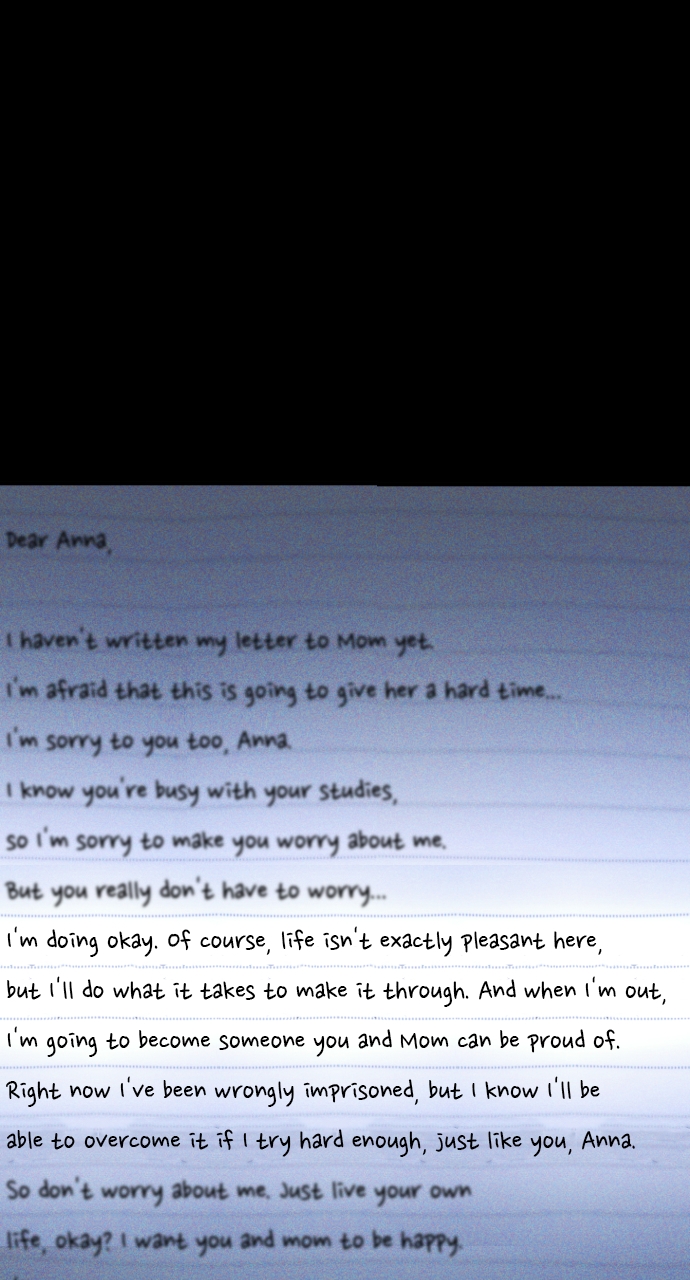 Dear Anna,
I haven't written my letter to Mom yet.
I'm afraid that this is going to give her a hard time...
I'm sorry to you too, Anna.
I know you're busy with your studies,
so I'm sorry to make you worry about me.
But you really don't have to worry...
I'm doing okay. Of course, life isn't exactly pleasant here,
but I'll do what it takes to make it through. And when I'm out,
I'm going to become someone you and Mom can be proud of.
Right now I've been wrongly imprisoned, but I know I'll be
able to overcome it if I try hard enough, just like you, Anna.
So don't worry about me. Just live your own
life, okay? I want you and mom to be happy.